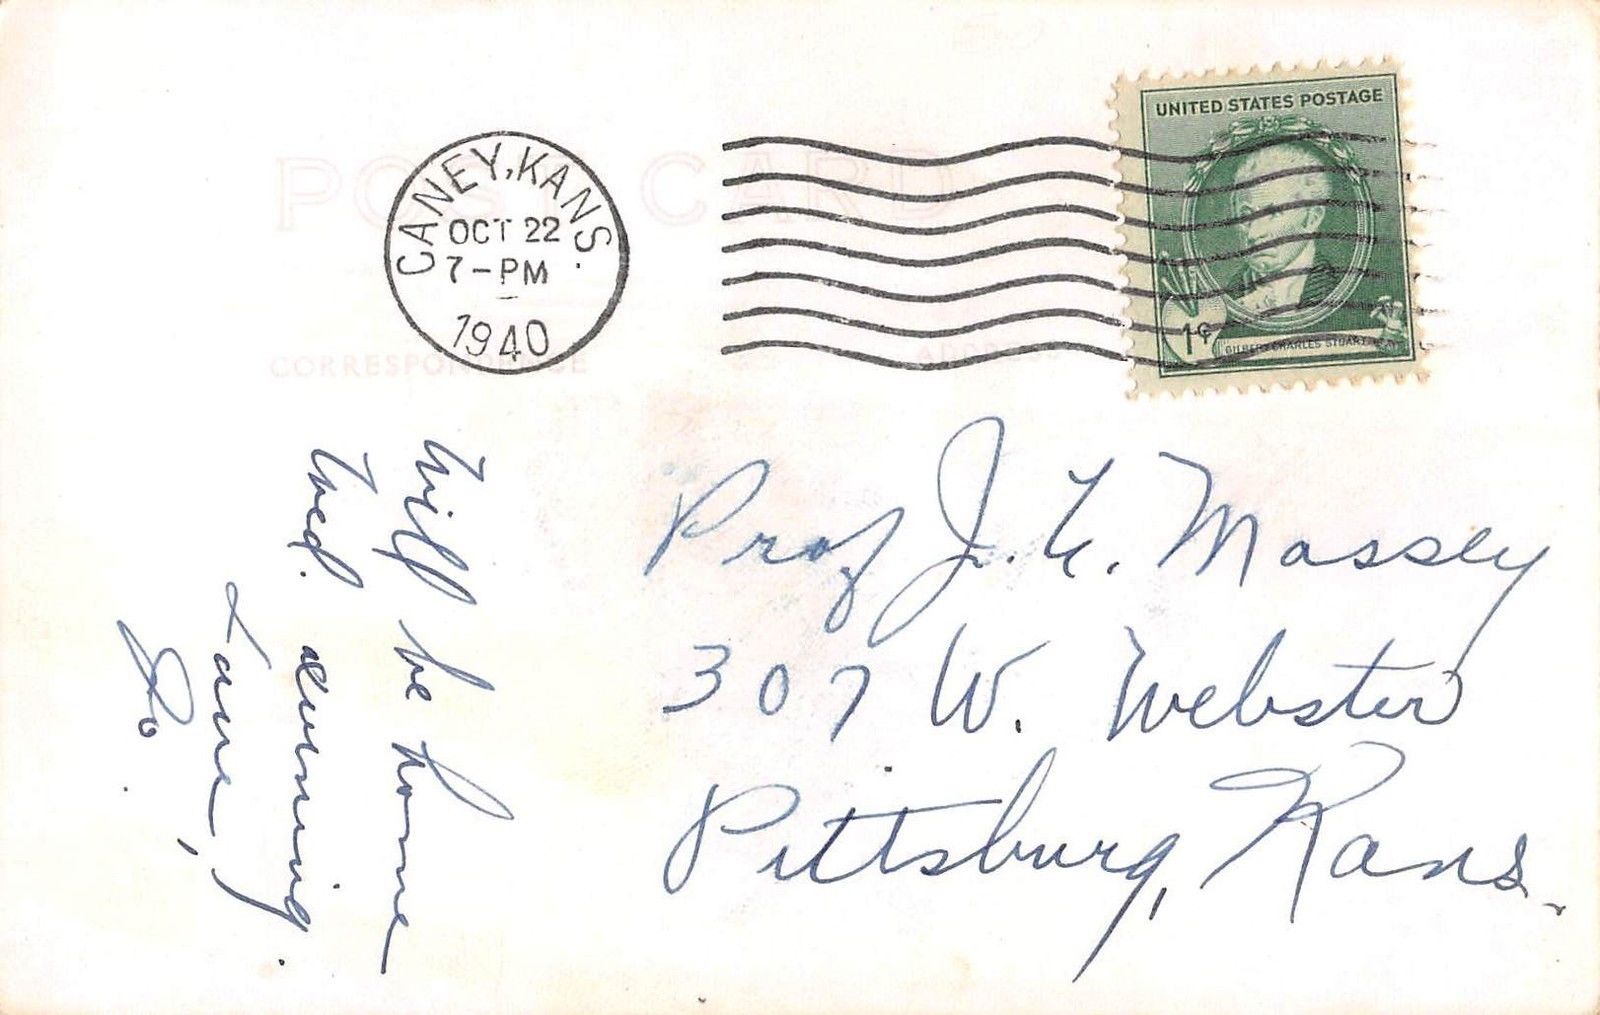 POST CARD
CANEY, KANS.
OCT 22
7-PM
1940
UNITED STATES POSTAGE
1¢
GILBERT CHARLES STUART
CORRESPONDENCE
ADDRESS
Will be home
Wed. evening.
Love,
Prof J. Massey
307 W. Webster
Pittsburg, Kans.